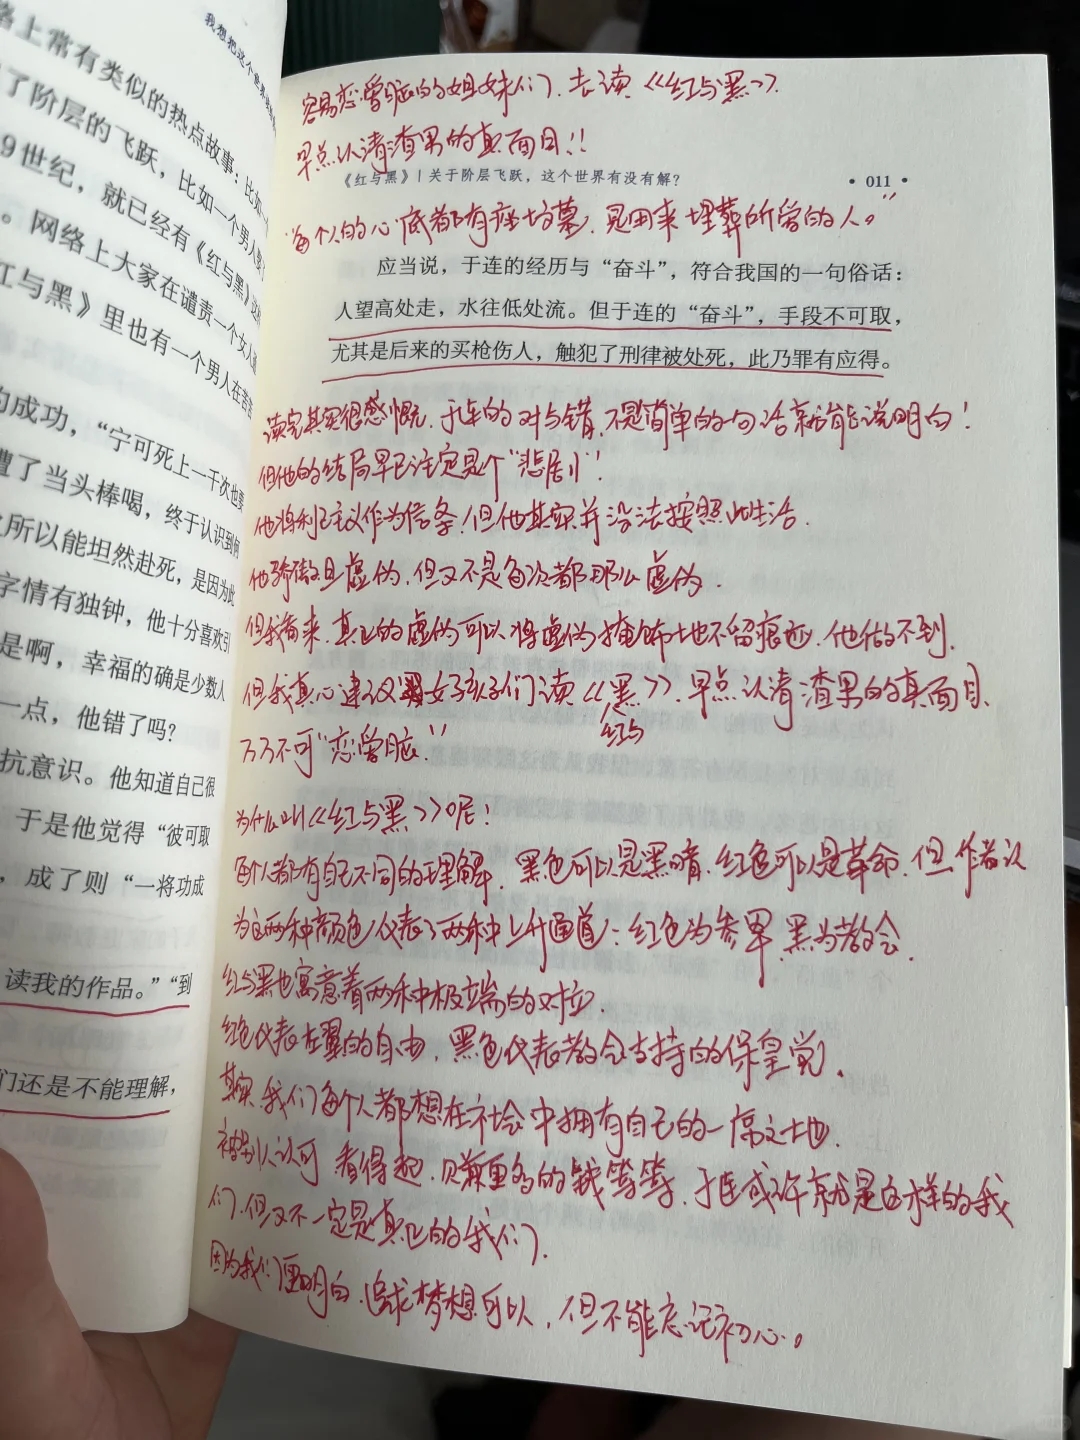 我想把这个世界
络上常有类似的热点故事：比如一
了阶层的飞跃，比如一个男人娶
9世纪，就已经有《红与黑》这
。网络上大家在谴责一个女人
红与黑》里也有一个男人在苦苦
的成功，“宁可死上一千次也要
遭了当头棒喝，终于认识到何
之所以能坦然赴死，是因为此
字情有独钟，他十分喜欢引
是啊，幸福的确是少数人
一点，他错了吗？
抗意识。他知道自己很
于是他觉得“彼可取
，成了则“一将功成
读我的作品。”“到
们还是不能理解，
容易恋爱脑的姐妹们，去读《红与黑》.
早点认清渣男的真面目！！
《红与黑》|关于阶层飞跃，这个世界有没有解？ • 011 •
“每个人的心底都有座坟墓，是用来埋葬所爱的人。”
应当说，于连的经历与“奋斗”，符合我国的一句俗话：
人望高处走，水往低处流。但于连的“奋斗”，手段不可取，
尤其是后来的买枪伤人，触犯了刑律被处死，此乃罪有应得。
读完其实很感慨，于连的对与错，不是简单的句话就能说明白！
但他的结局早已注定是个“悲剧”！
他将利己主义作为信条，但他其实并没法按照此生活.
他骄傲且虚伪，但又不是每次都那么虚伪.
但我看来，真正的虚伪可以将虚伪掩饰地不留痕迹，他做不到.
但我真心建议女孩子们读《红与黑》，早点认清渣男的真面目、
万万不可“恋爱脑.”
为什么叫《红与黑》呢！
每个人都有自己不同的理解，黑色可以是黑暗，红色可以是革命，但作者认
为这两种颜色代表了两种上升通道：红色为参军，黑为教会.
红与黑也寓意着两种极端的对应.
红色代表左翼的自由，黑色代表教会支持的保皇党，
其实，我们每个人都想在社会中拥有自己的一席之地.
被别人认可，看得起，赚更多的钱等等，于连或许就是这样的我
们，但又不一定是真正的我们.
因为我们要明白，追求梦想可以，但不能忘记初心。